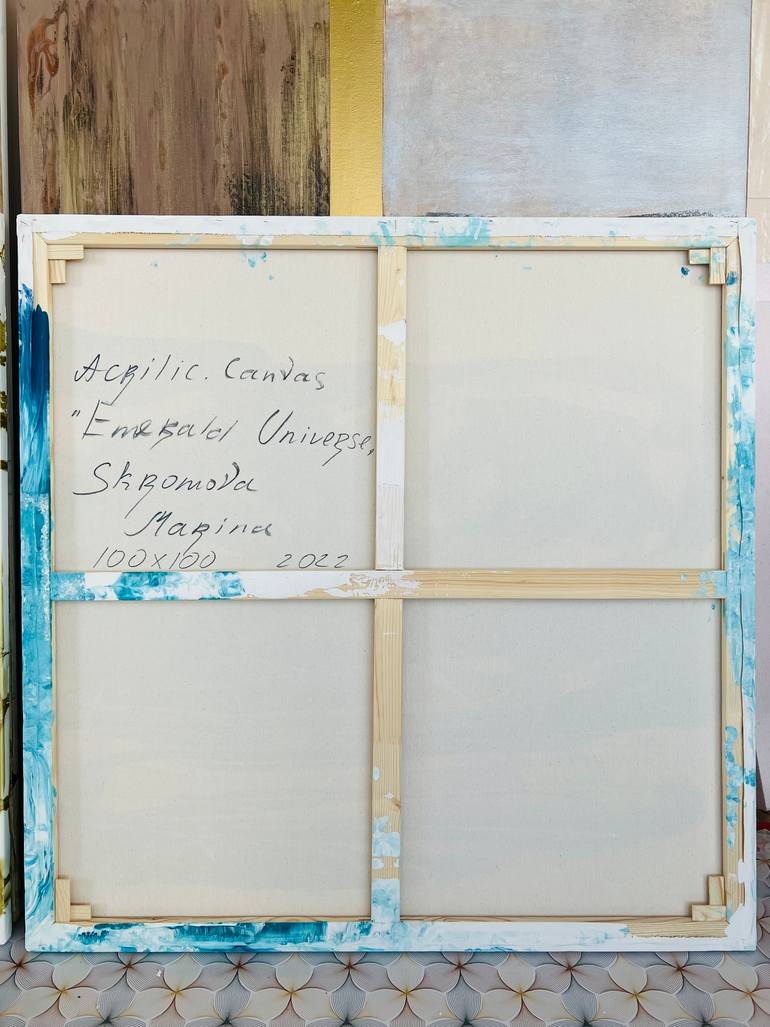 Acrilic. Canvas
"Emerald Universe,
Skromova
Marina
100x100 2022